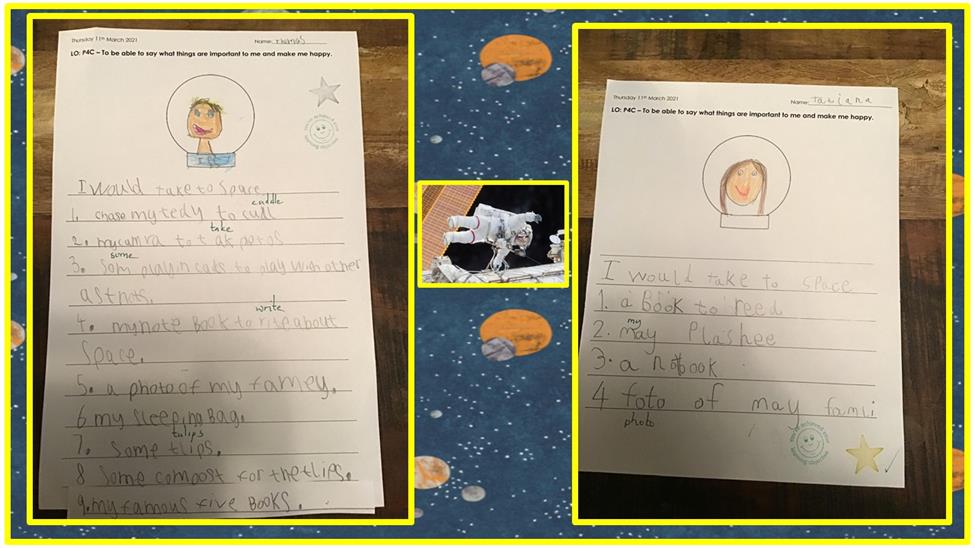 Thursday 11th March 2021
Name: Thomas
LO: P4C – To be able to say what things are important to me and make me happy.
I would take to Space
cuddle
1. chase my tedy to cudl
take
2. my camra to tak potos
some
3. Som playin cads to play with other
astnots.
write
4. my note Book to rite about
Space.
5. a photo of my famey.
6 my sleeping Bag.
tulips
7. Some tlips.
8 Some compost for the tlips.
9. my famous five Books.
Thursday 11th March 2021
Name: Tatiana
LO: P4C – To be able to say what things are important to me and make me happy.
I would take to space
1. a Book to reed
my
2. may Plashee
3. a notbook
4 foto of may famli
photo
You've achieved your
learning objective